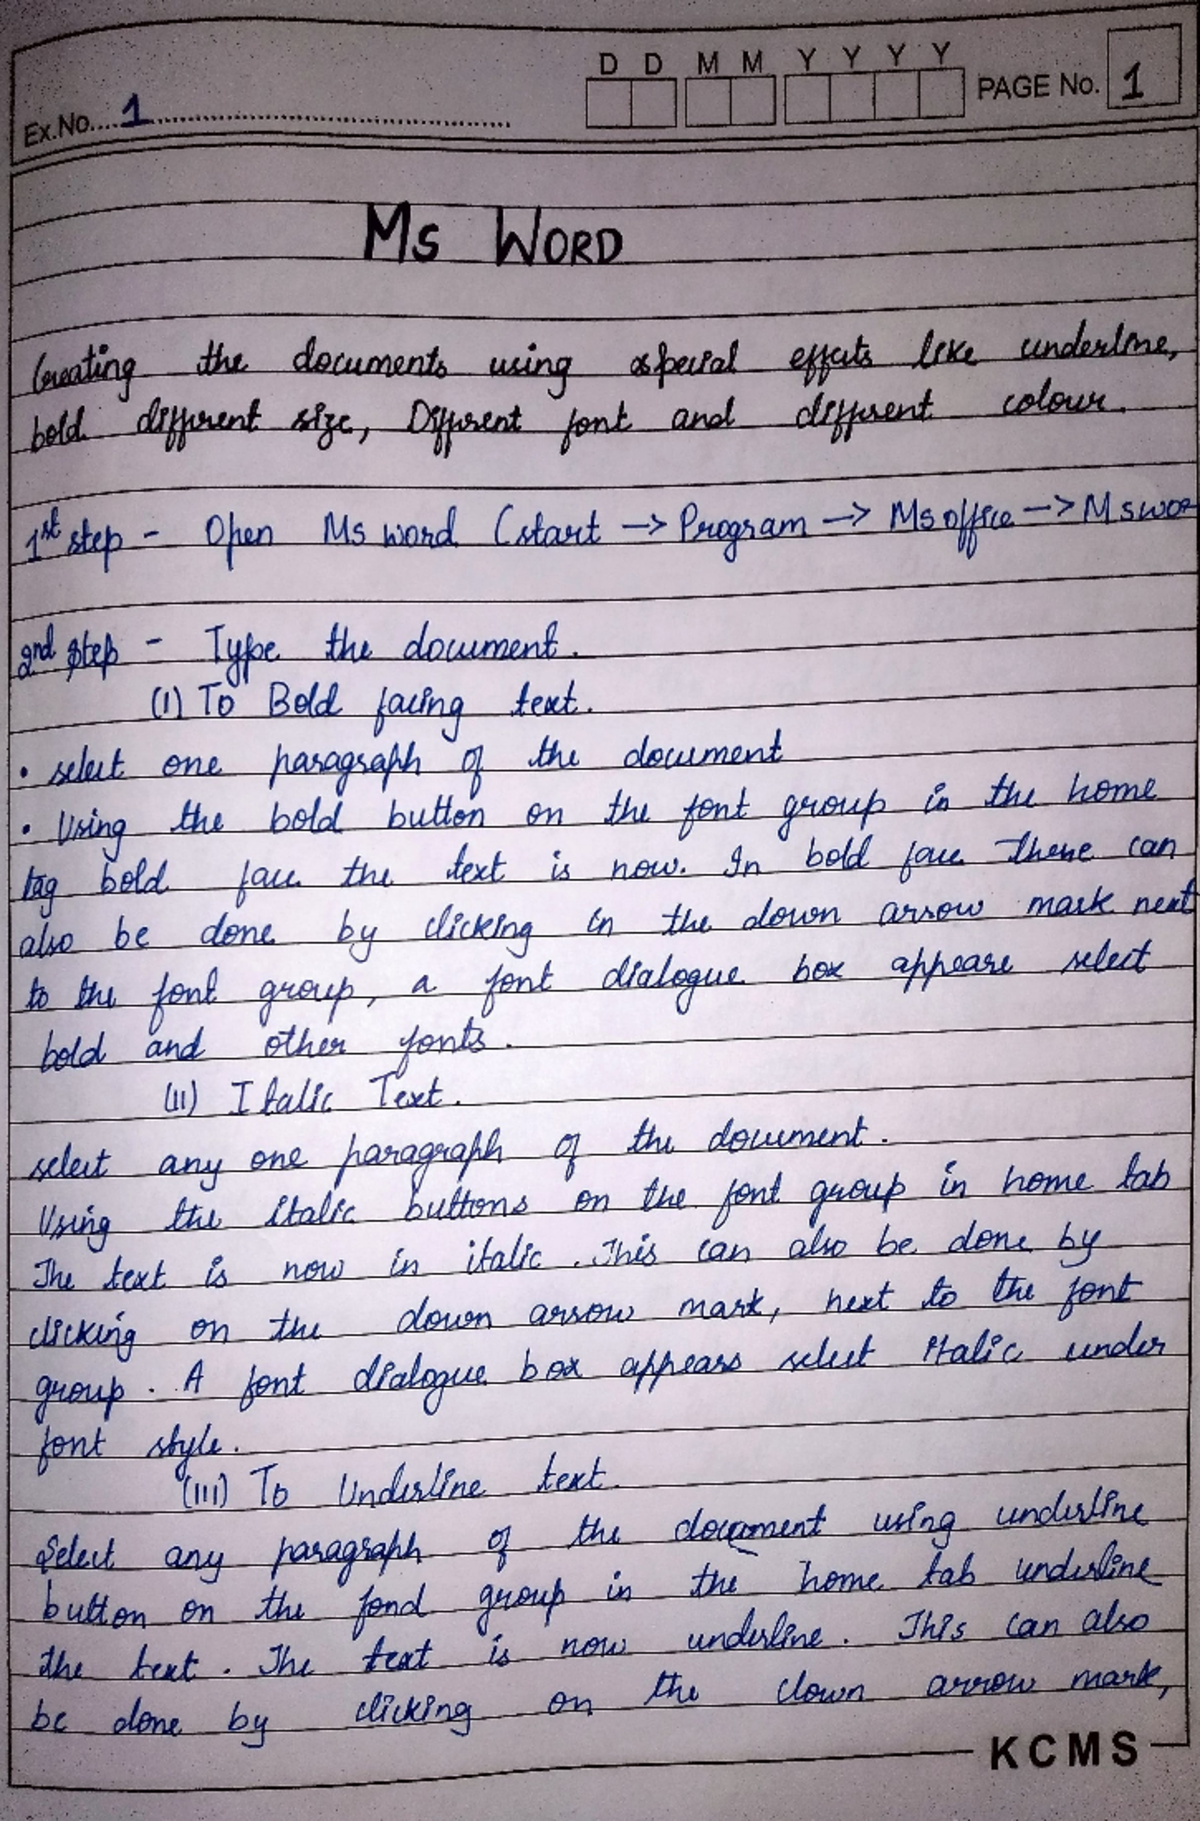 D D M M Y Y Y Y
Ex.No. 1 PAGE No. 1
Ms WORD
Creating the documents using special effects like underline,
bold different size, Different font and different colour.
1st step - Open Ms word (start -> Program -> Ms office -> Mswor
2nd step - Type the document.
(I) To Bold facing text.
• select one paragraph of the document
• Using the bold button on the font group in the home
tag bold face the text is now. In bold face These can
also be done by clicking in the down arrow mark next
to the font group, a font dialogue box appeare select
bold and other fonts.
(II) Italic Text.
select any one paragraph of the document.
Using the italic buttons on the font group in home tab
The text is now in italic. This can also be done by
clicking on the down arrow mark, next to the font
group. A font dialogue box appears select italic under
font style.
(III) To Underline text.
Select any paragraph of the document using underline
button on the fond group in the home tab underline
the text. The text is now underline. This can also
be done by clicking on the down arrow mark,
KCMS